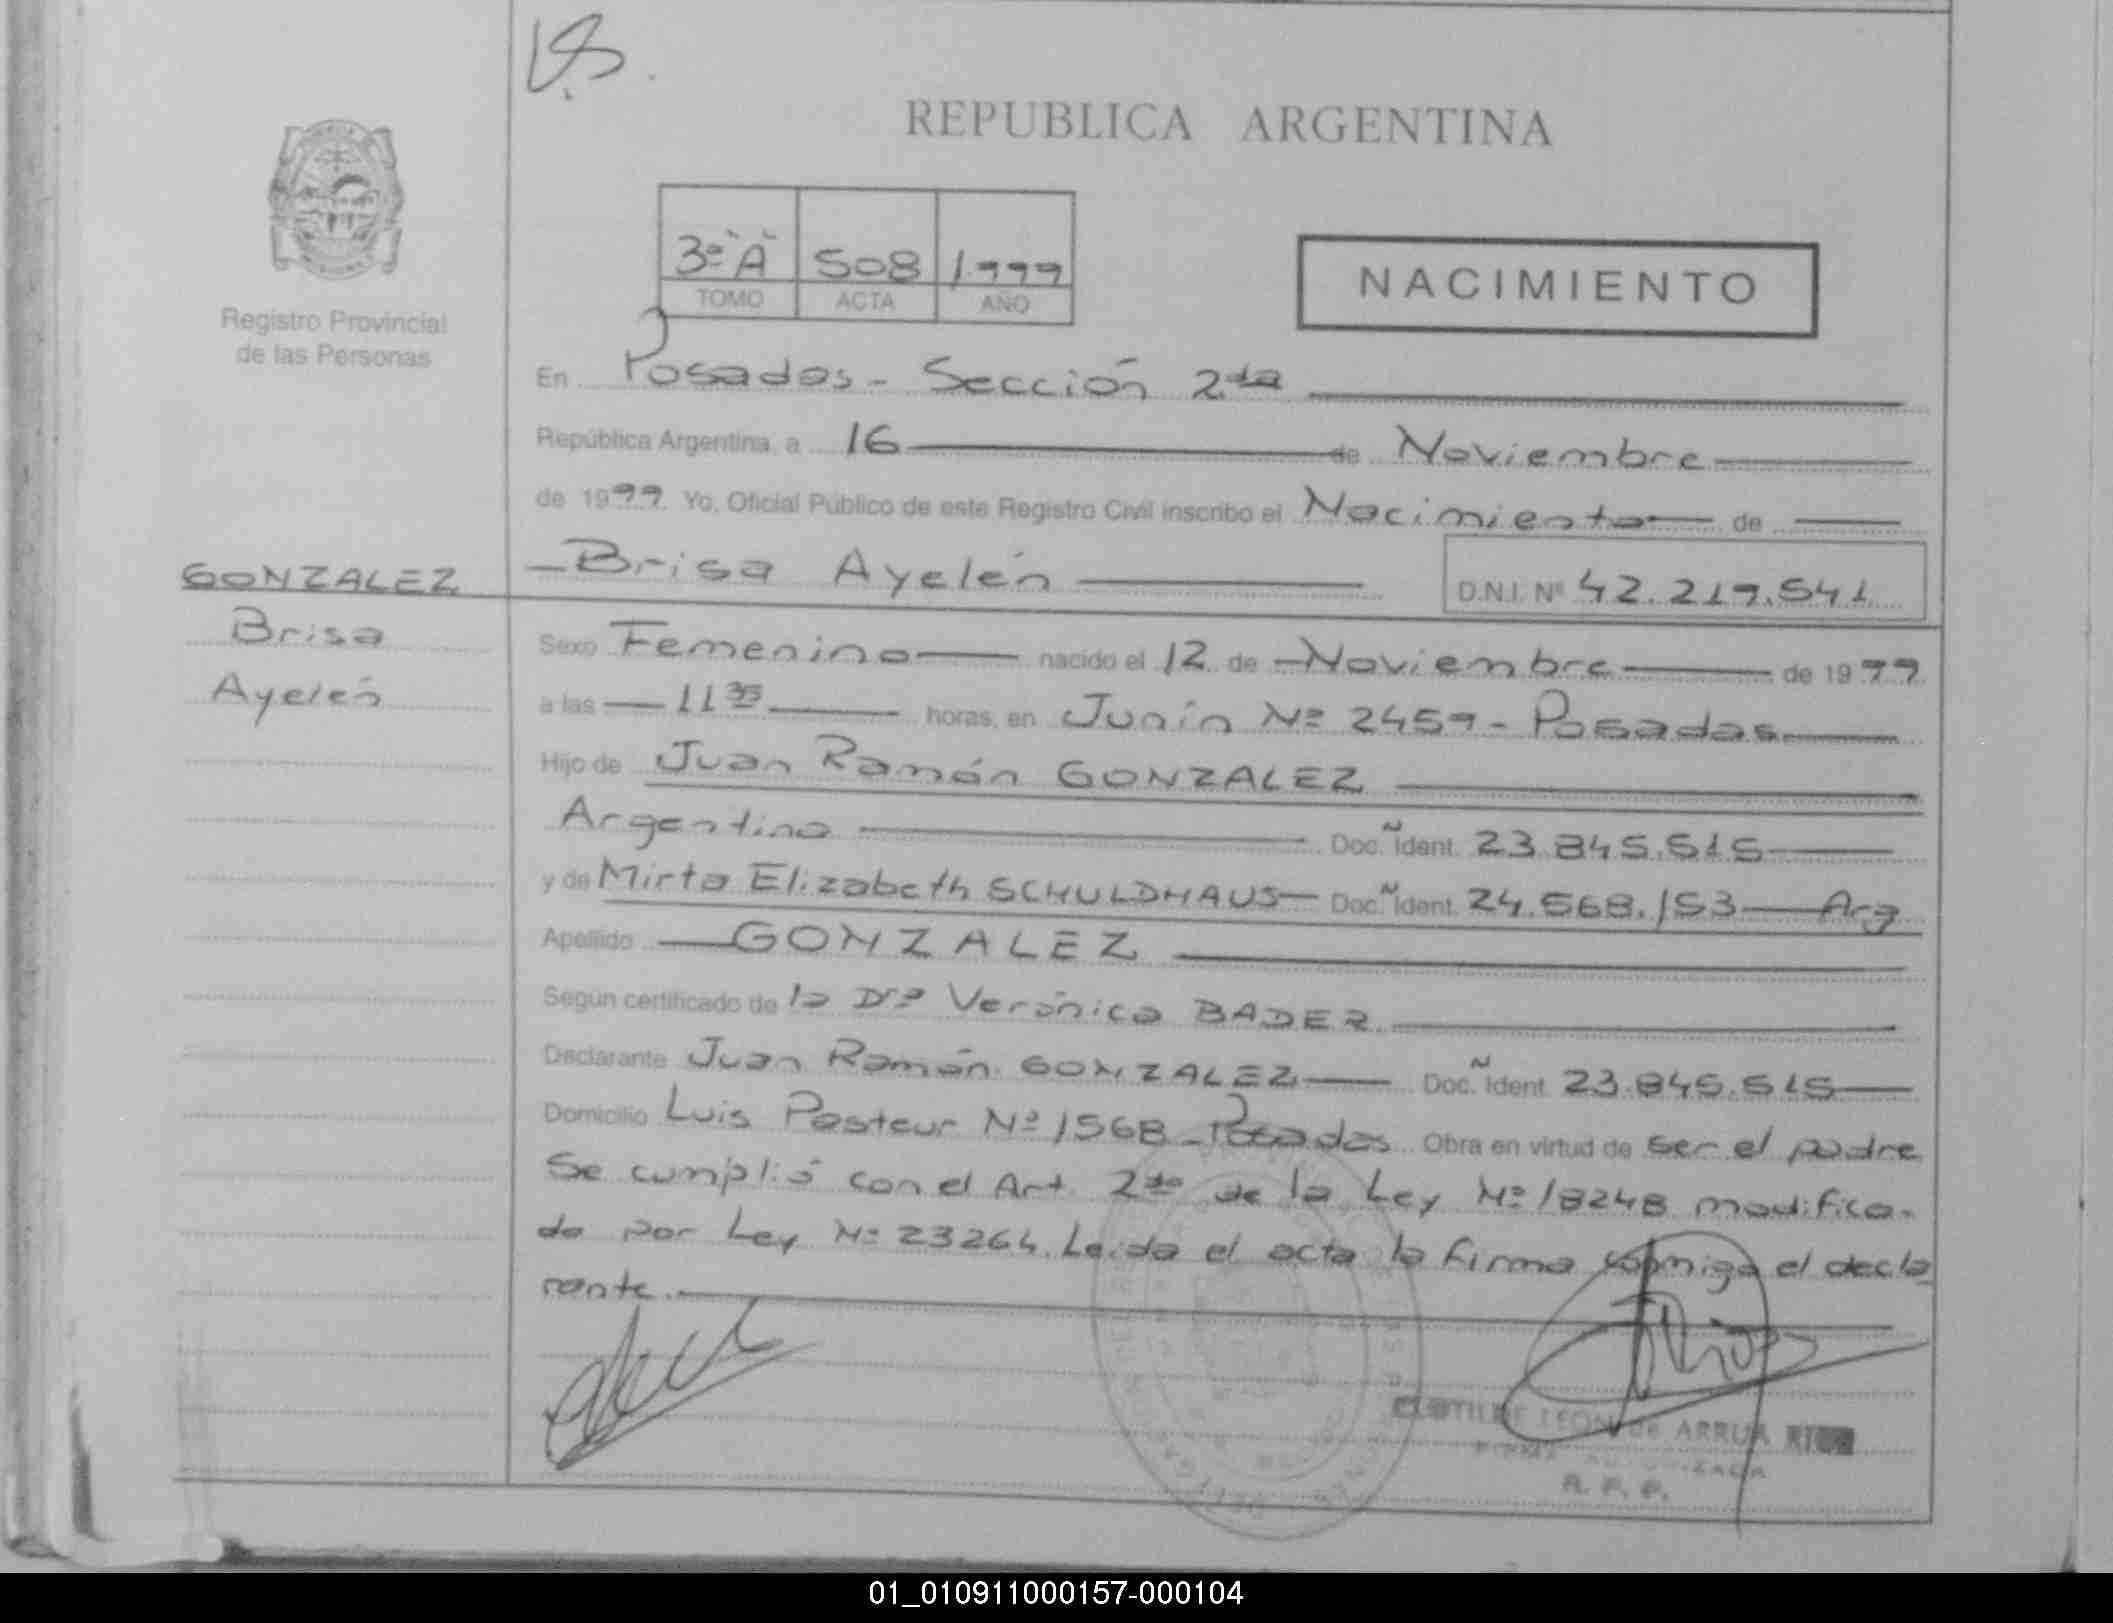 REPUBLICA ARGENTINA
3º "A" 508 1999
TOMO ACTA AÑO
NACIMIENTO
Registro Provincial
de las Personas
En Posadas - Sección 2da
República Argentina, a 16 de Noviembre
de 1999. Yo, Oficial Público de este Registro Civil inscribo el Nacimiento de
GONZALEZ
Brisa
Ayelén
Brisa Ayelén D.N.I. Nº 42.219.541
Sexo Femenino nacido el 12 de Noviembre de 1999
a las 11 35 horas, en Junín Nº 2459 - Posadas
Hijo de Juan Ramón GONZALEZ
Argentino Doc. Ident. 23.845.515
y de Mirta Elizabeth SCHULDHAUS Doc. Ident. 24.568.153 Arg
Apellido GONZALEZ
Según certificado de la Drª Verónica BADER
Declarante Juan Ramón GONZALEZ Doc. Ident. 23.845.515
Domicilio Luis Pasteur Nº 1568 - Posadas Obra en virtud de ser el padre
Se cumplió con el Art. 2do de la Ley Nº 18248 modifica-
da por Ley Nº 23264. Leida el acta la firma conmigo el decla
rante.
CLOTILDE LEON de ARRUA RIOS
R. P. P.
01_010911000157-000104